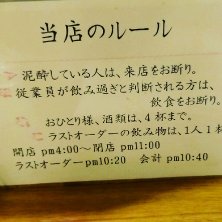 当店のルール
泥酔している人は、来店をお断り。
従業員が飲み過ぎと判断される方は、
飲食をお断り。
おひとり様、酒類は、4杯まで。
ラストオーダーの飲み物は、1人1
開店 pm4:00～閉店 pm11:00
ラストオーダーpm10:20 会計 pm10:40